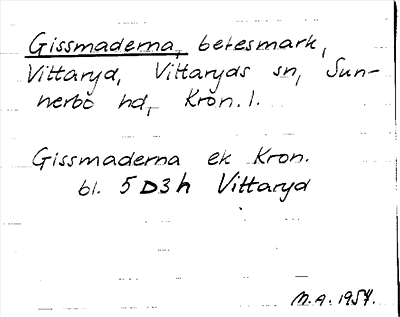 Gissmaderna, betesmark,
Vittaryd, Vittaryds sn, Sun-
nerbo hd, Kron. l.
Gissmaderna ek Kron.
bl. 5D3h Vittaryd
M.A. 1957.